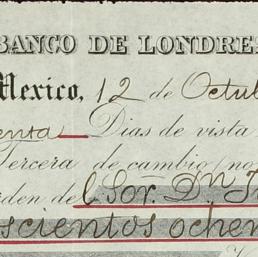 BANCO DE LONDRE
Mexico, 12 de Octu
enta Dias de vista
Tercera de cambio (no
rden del Sor. Dn
scientos ochen